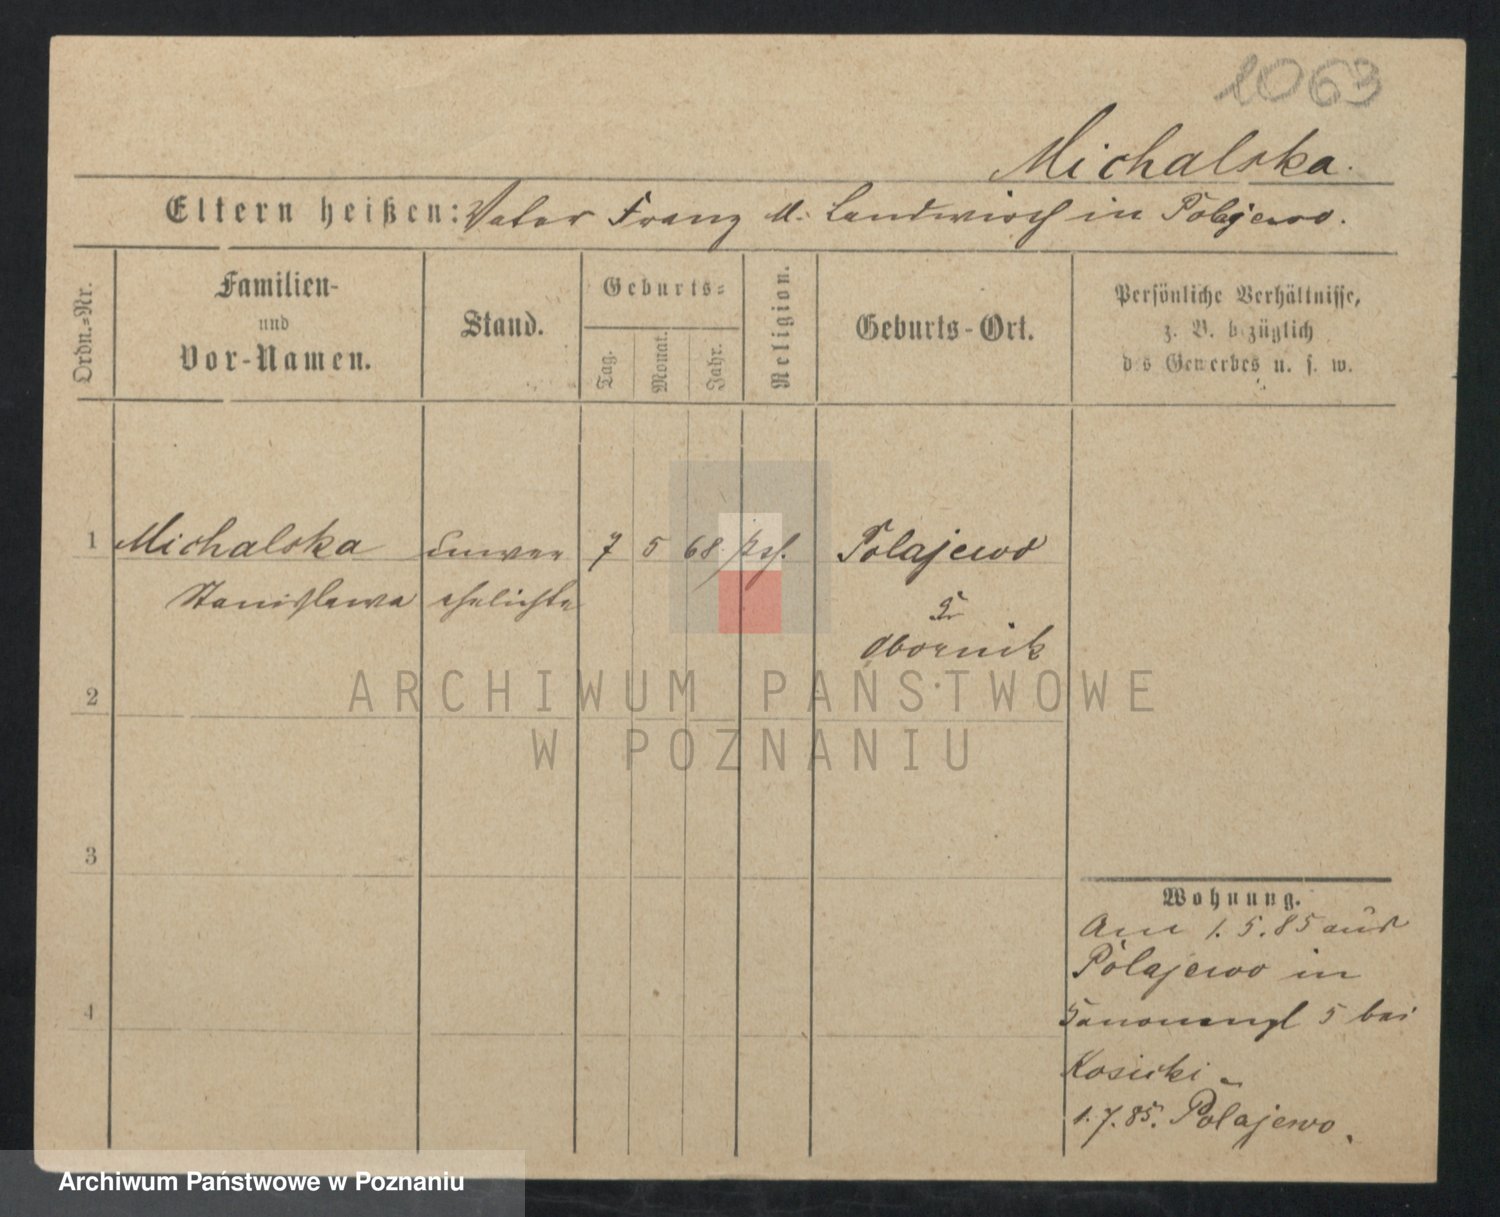 1063
Michalska.
Eltern heißen: Vater Franz M. Landwirth in Polajewo.
Ordn.-Nr.
Familien-
und
Vor-Namen.
Stand.
Geburts-
Tag.
Monat.
Jahr.
Religion.
Geburts-Ort.
Persönliche Verhältnisse,
z. B. bezüglich
des Gewerbes u. s. w.
1 Michalska unver 7 5 68. Polajewo
Stanislawa ehelichte
Obornik
ARCHIWUM PAŃSTWOWE
W POZNANIU
2
3
4
Wohnung.
Am 1.5.85 aus
Polajewo in
5 bei
Kosicki
1.7.85. Polajewo.
Archiwum Państwowe w Poznaniu